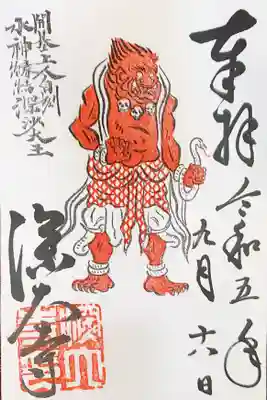 奉拝 令和五年
九月六日
開基上人自刻
水神 深沙大王
深大寺